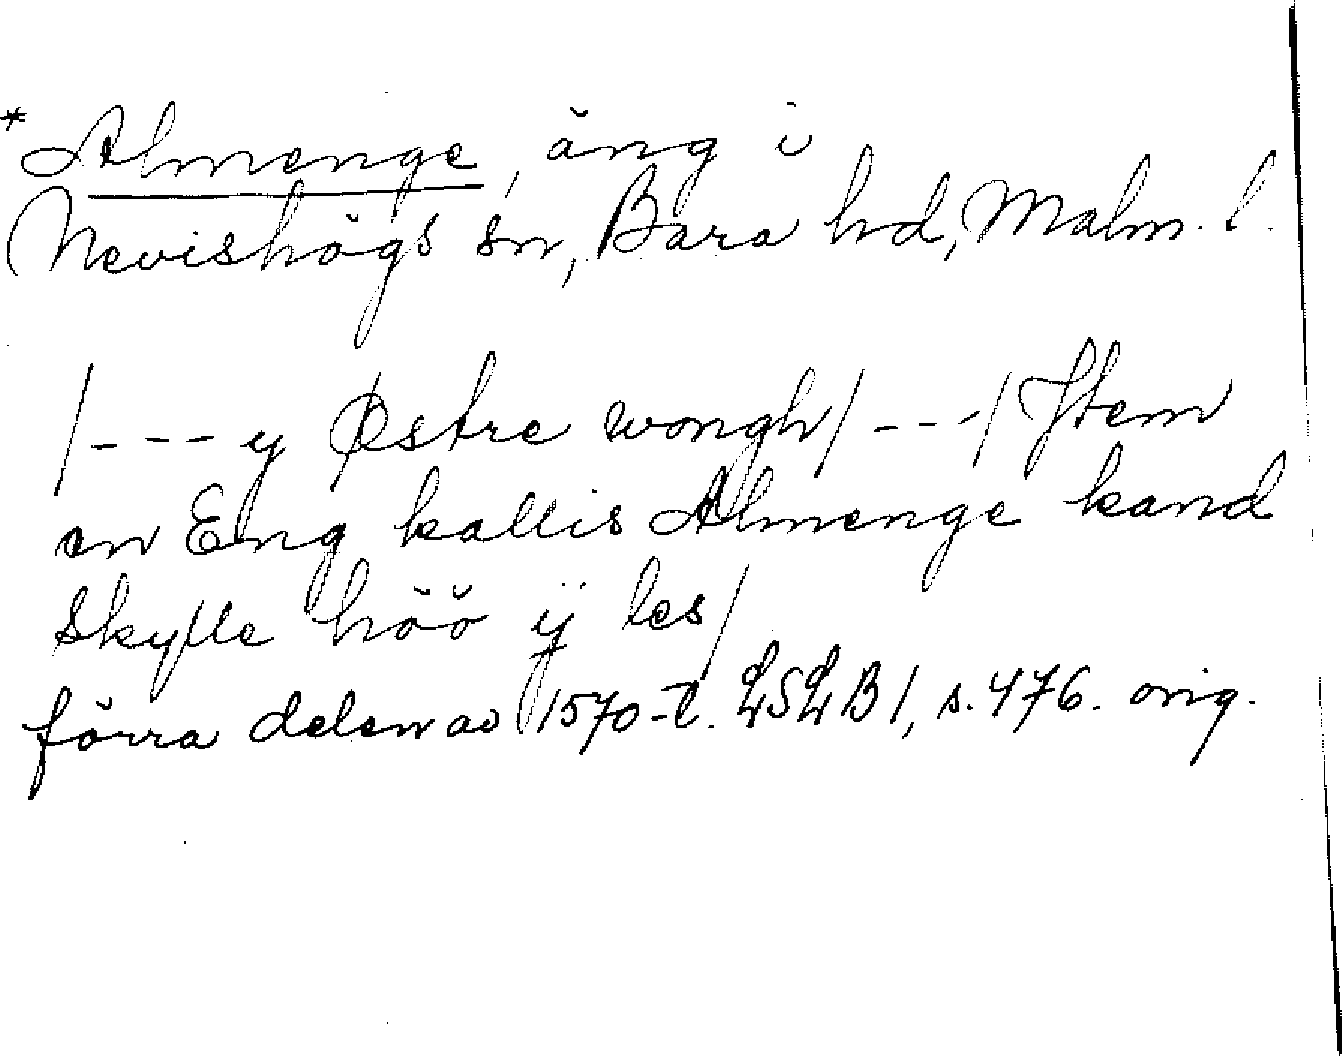 *Almenge, äng i
Nevishögs sn, Bara hd, Malm. l.
/---y Østre wongh/---/Jtem
en Eng kallis Almenge kand
Skylle höö ÿ les/
förra delen av 1570-t. LSLB1, s. 476. orig.